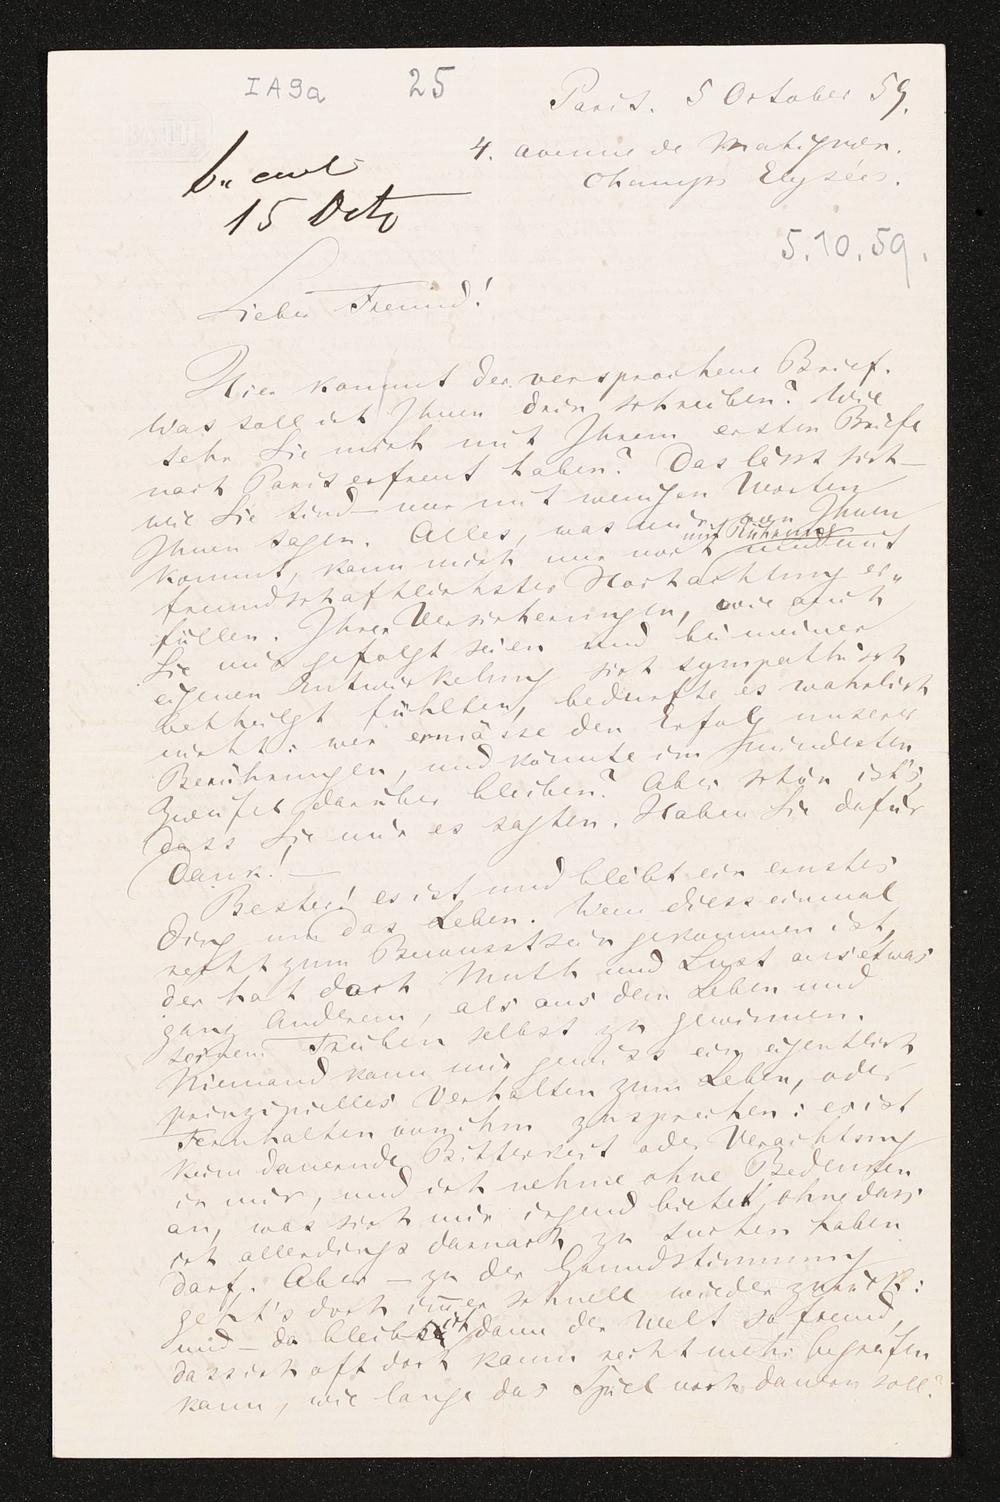 I A 9a 25
Paris. 5 October 59.
4. avenue de Matignon.
Champs Elysées.
15 Octo
5.10.59.
Lieber Freund!
Hier kommt der versprochene Brief.
Was soll ich Ihnen drin schreiben? Wie
sehr Sie mich mit Ihrem ersten Briefe
nach Paris erfreut haben? Das lässt sich –
wie Sie sind – nur mit wenigen Worten
Ihnen sagen. Alles, was mir von Ihnen
kommt, kann mich nur noch mit Rührung und mit
freundschaftlichster Hochachtung er„
füllen. Ihrer Versicherungen, wie auch
Sie mir gefolgt seien und bei meiner
eigenen Entwickelung sich sympathisch
betheiligt fühlten, bedurfte es wahrlich
nicht: wer ermässe den Erfolg unserer
Berührungen, und könnte im mindesten
Zweifel darüber bleiben? Aber schön ist's,
dass Sie mir es sagten. Haben Sie dafür
Dank! —
Bester! es ist und bleibt ein ernstes
Ding um das Leben. Wem diess einmal
recht zum Bewusstsein gekommen ist,
der hat doch Muth und Lust aus etwas
ganz Anderem, als aus dem Leben und
seinem Treiben selbst zu gewinnen.
Niemand kann mir gewiss ein eigentlich
prinzipielles Verhalten zum Leben, oder
Fernhalten von ihm zusprechen: es ist
keine dauernde Bitterkeit oder Verachtung
in mir, und ich nehme ohne Bedenken
an, was sich mir irgend bietet, ohne dass
ich allerdings darnach zu suchen haben
darf. Aber – zu der Grundstimmung
geht's doch immer schnell wieder zurück:
und – da bleib ich dann der Welt so fremd,
dass ich oft doch kaum recht mehr begreifen
kann, wie lange das Spiel noch dauern soll?